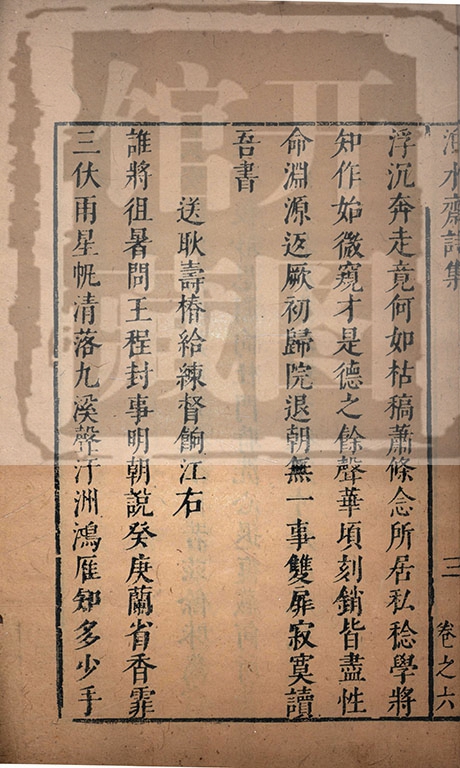 水齋詩集 三 卷之六
浮沉奔走竟何如枯稿蕭條念所居私稔學將
知作始微窺才是德之餘聲華頃刻銷皆盡性
命淵源返厥初歸院退朝無一事雙扉寂寞讀
吾書
送耿壽椿給練督餉江右
誰將徂暑問王程封事明朝說癸庚蘭省香霏
三伏雨星帆清落九溪聲汀洲鴻雁知多少手